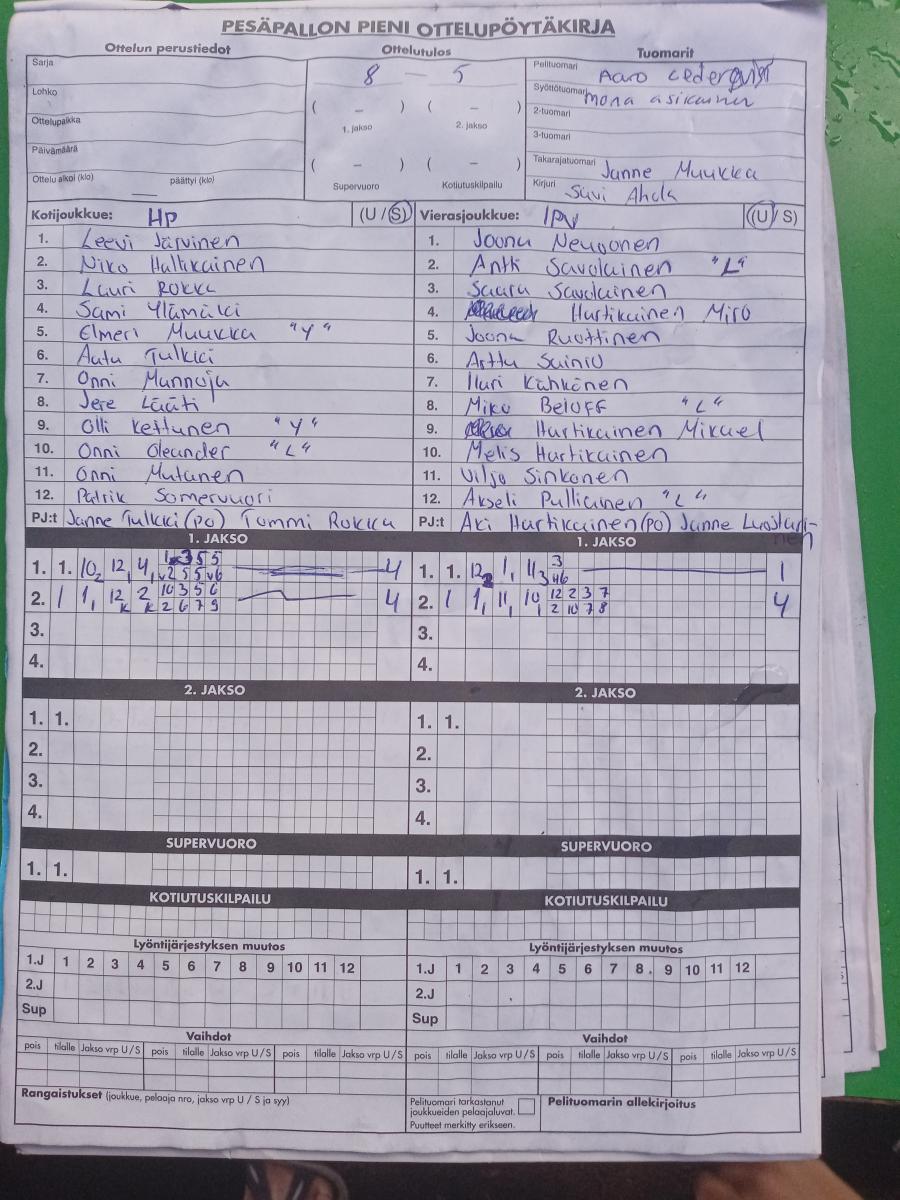 PESÄPALLON PIENI OTTELUPÖYTÄKIRJA
Ottelun perustiedot
Sarja
Lohko
Ottelupaikka
Päivämäärä
Ottelu alkoi (klo) päättyi (klo)
Ottelutulos
8 — 5
( – ) ( – )
1. jakso 2. jakso
( – ) ( – )
Supervuoro Kotiutuskilpailu
Tuomarit
Pelituomari Aaro Cederqvist
Syöttötuomari mona asikainen
2-tuomari
3-tuomari
Takarajatuomari Janne Muukka
Kirjuri Suvi Ahola
Kotijoukkue: HP (U / S)
1. Leevi Järvinen
2. Niko Hallikainen
3. Lauri Rokka
4. Sami Ylämäki
5. Elmeri Muukka "Y"
6. Aatu Tulkki
7. Onni Mannoja
8. Jere Lääti
9. Olli Kettunen "Y"
10. Onni Oleander "L"
11. Onni Mutanen
12. Patrik Somervuori
PJ:t Janne Tulkki (PO) Tommi Rokka
Vierasjoukkue: IPV (U / S)
1. Joona Neuvonen
2. Antti Savolainen "L"
3. Saara Savolainen
4. Hartikainen Miro
5. Joona Ruottinen
6. Arttu Sainio
7. Iluri Kähkönen
8. Miko Beloff "L"
9. Hartikainen Mikael
10. Melis Hartikainen
11. Viljo Sinkonen
12. Akseli Pulliainen "L"
PJ:t Aki Hartikainen (PO) Janne Luostarinen
1. JAKSO
1. 1. 10 2 12 1 4 1 5 5 4
2 5 5 6
2. 1 1 1 12 K 2 K 10 3 5 6 4
2 6 7 9
3.
4.
1. JAKSO
1. 1. 12 2 1 1 11 3 3 1
46
2. 1 1 1 11 1 10 1 12 2 3 7 4
2 10 7 8
3.
4.
2. JAKSO
1. 1.
2.
3.
4.
2. JAKSO
1. 1.
2.
3.
4.
SUPERVUORO
1. 1.
SUPERVUORO
1. 1.
KOTIUTUSKILPAILU
KOTIUTUSKILPAILU
Lyöntijärjestyksen muutos
1.J 1 2 3 4 5 6 7 8 9 10 11 12
2.J
Sup
Lyöntijärjestyksen muutos
1.J 1 2 3 4 5 6 7 8 9 10 11 12
2.J
Sup
Vaihdot
pois tilalle Jakso vrp U / S pois tilalle Jakso vrp U / S pois tilalle Jakso vrp U / S
Vaihdot
pois tilalle Jakso vrp U / S pois tilalle Jakso vrp U / S pois tilalle Jakso vrp U / S
Rangaistukset (joukkue, pelaaja nro, jakso vrp U / S ja syy)
Pelituomari tarkastanut
joukkueiden pelaajaluvat.
Puutteet merkitty erikseen.
Pelituomarin allekirjoitus